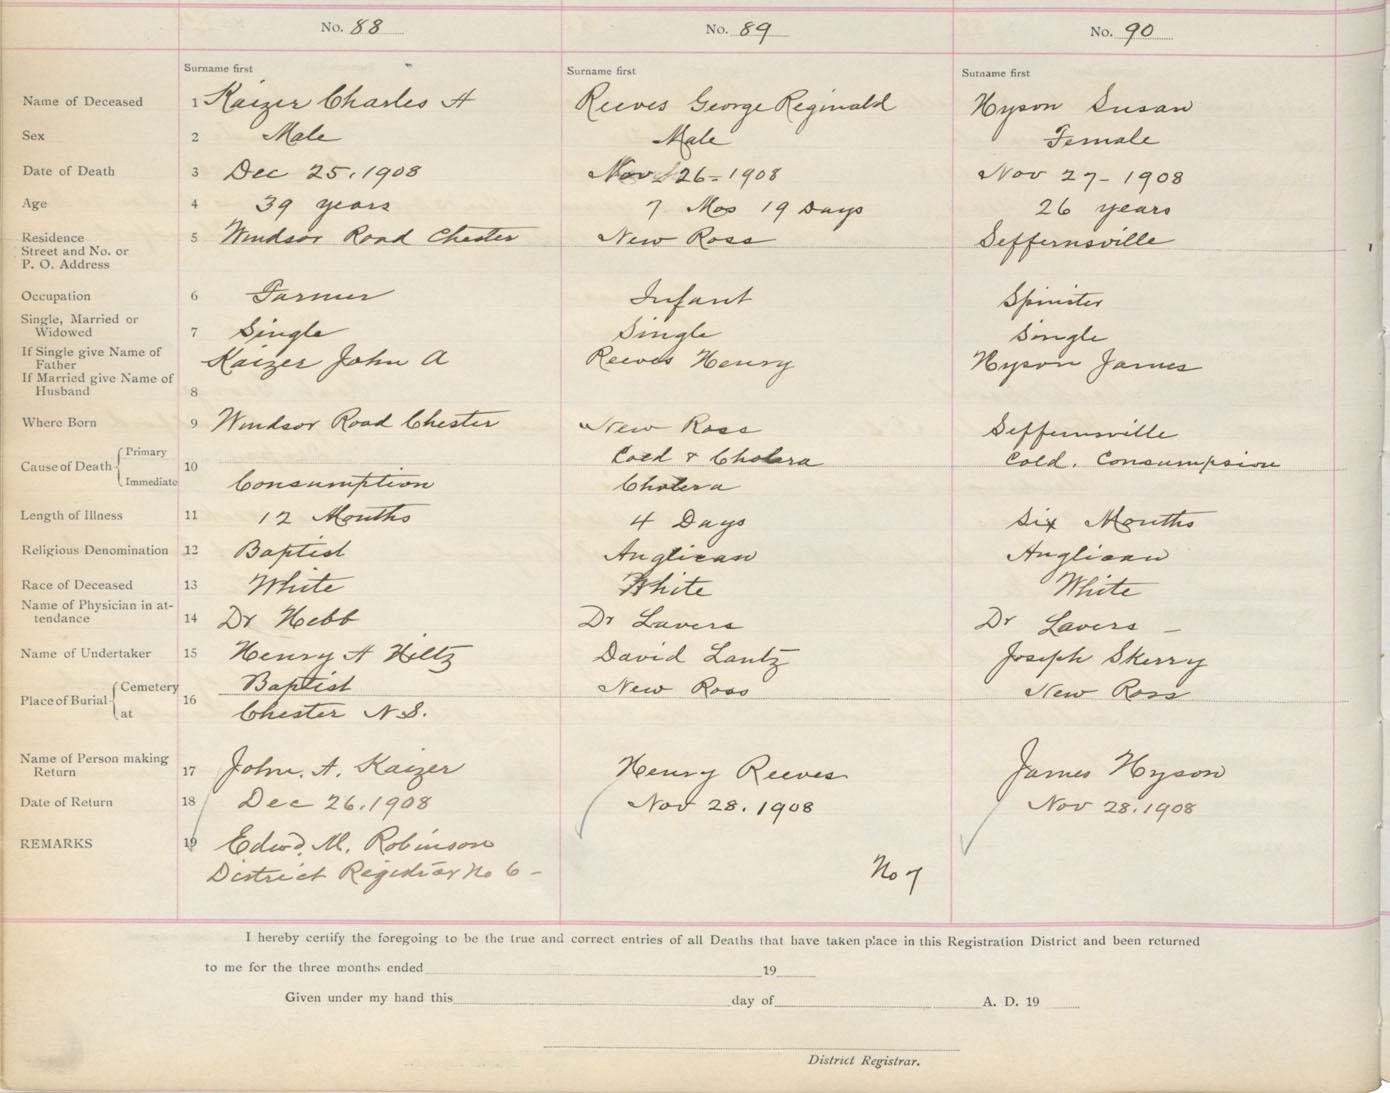 No. 88 No. 89 No. 90
Surname first Surname first Surname first
Name of Deceased 1 Kaizer Charles A Reeves George Reginald Hyson Susan
Sex 2 Male Male Female
Date of Death 3 Dec 25. 1908 Nov 26 - 1908 Nov 27 - 1908
Age 4 39 years 7 Mos 19 Days 26 years
Residence 5 Windsor Road Chester New Ross Seffernsville
Street and No. or
P. O. Address
Occupation 6 Farmer Infant Spinster
Single, Married or
Widowed 7 Single Single Single
If Single give Name of
Father Kaizer John A Reeves Henry Hyson James
If Married give Name of
Husband 8
Where Born 9 Windsor Road Chester New Ross Seffernsville
Cause of Death Primary 10 Cold & Cholera Cold. Consumpsion
Immediate Consumption Cholera
Length of Illness 11 12 Months 4 Days Six Months
Religious Denomination 12 Baptist Anglican Anglican
Race of Deceased 13 White White White
Name of Physician in at-
tendance 14 Dr Hebb Dr Lavers Dr Lavers -
Name of Undertaker 15 Henry A Hiltz David Lantz Joseph Skerry
Place of Burial Cemetery 16 Baptist New Ross New Ross
at Chester N.S.
Name of Person making
Return 17 John. A. Kaizer Henry Reeves James Hyson
Date of Return 18 Dec 26. 1908 Nov 28. 1908 Nov 28. 1908
REMARKS 19 Edwd. M. Robinson
District Registrar No 6 - No 7
I hereby certify the foregoing to be the true and correct entries of all Deaths that have taken place in this Registration District and been returned
to me for the three months ended 19
Given under my hand this day of A. D. 19
District Registrar.